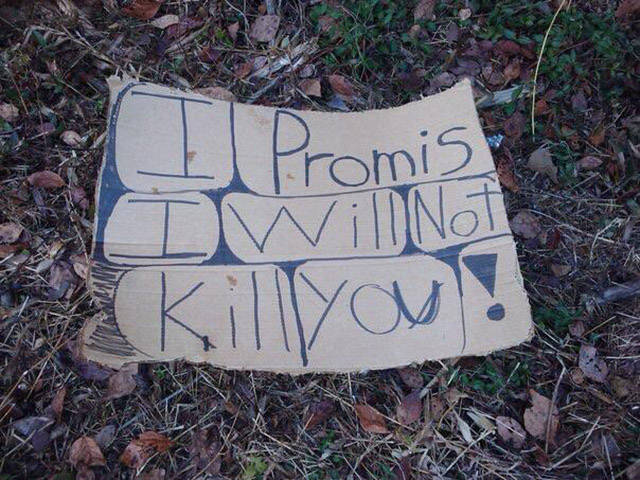 I Promis
I Will Not
Kill You!